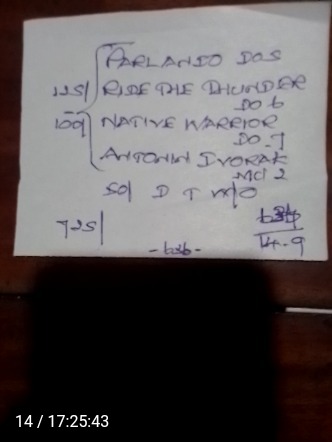 PARLANDO DOS
125/ RIDE THE THUNDER
DO 6
100/ NATIVE WARRIOR
DO 7
ANTONIN DVORAK
MCJ 2
50/ D T W/O
725/
14.9
14 / 17:25:43